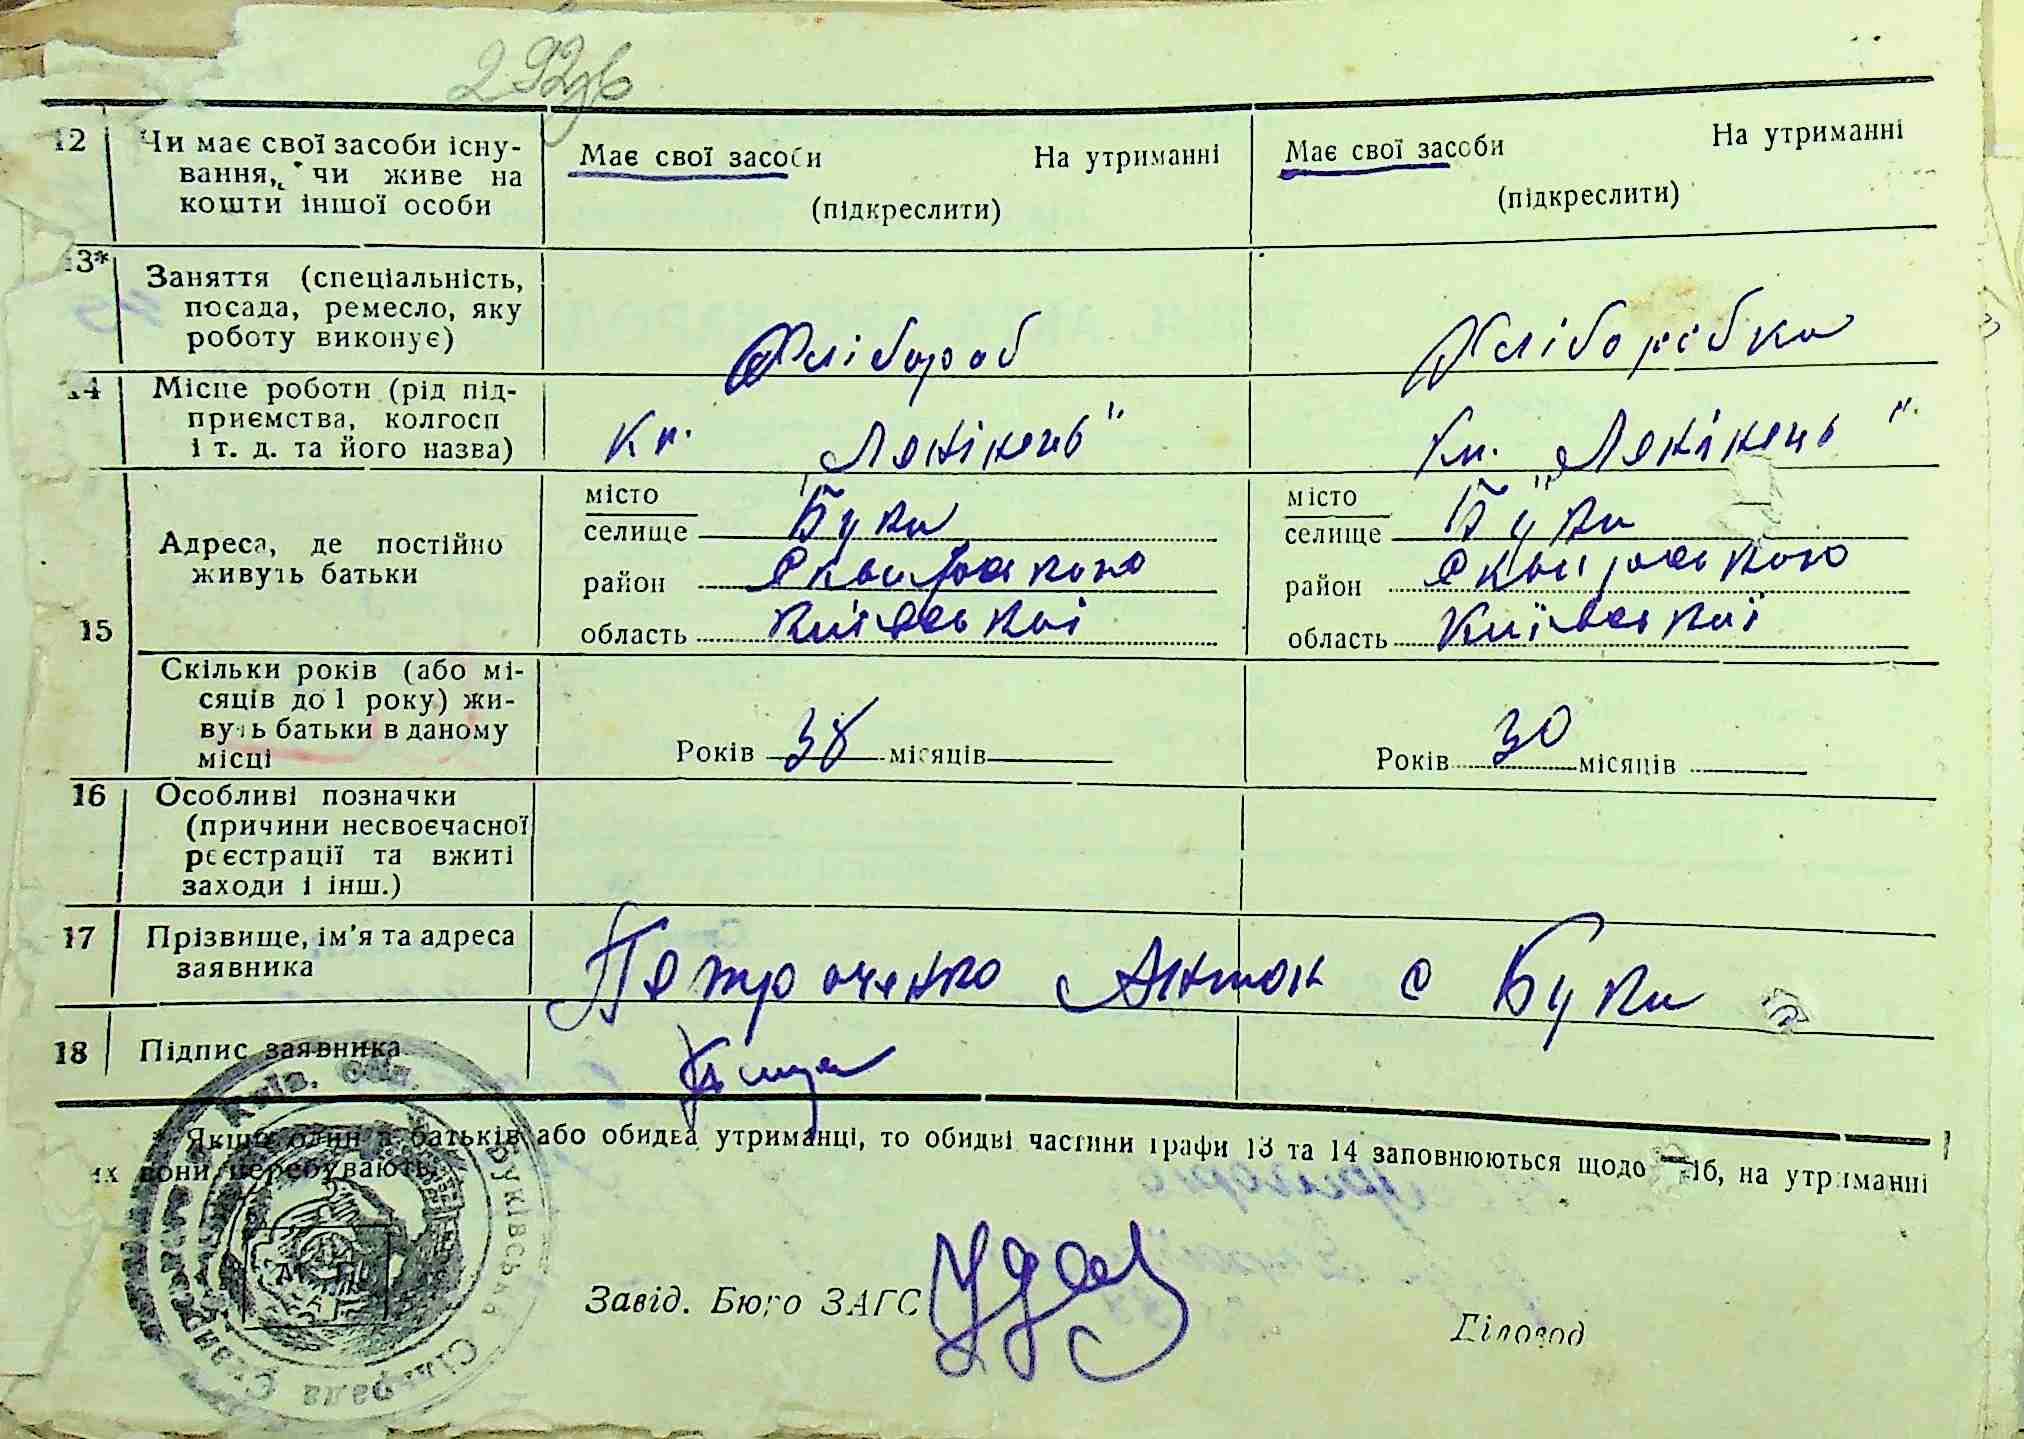 292зв
12 Чи має свої засоби існу- Має свої засоби На утриманні Має свої засоби На утриманні
вання, чи живе на
кошти іншої особи (підкреслити) (підкреслити)
13* Заняття (спеціальність,
посада, ремесло, яку
роботу виконує) Хлібороб Хліборобка
14 Місце роботи (рід під-
приємства, колгосп
і т. д. та його назва) Кг. "Ленінець" Кг. "Ленінець"
15 Адреса, де постійно
живуть батьки
місто місто
селище Буки селище Буки
район Сквирського район Сквирського
область Київської область Київської
Скільки років (або мі-
сяців до 1 року) жи-
вуть батьки в даному
місці Років 38 місяців Років 30 місяців
16 Особливі позначки
(причини несвоєчасної
реєстрації та вжиті
заходи і інш.)
17 Прізвище, ім'я та адреса
заявника Петроченко Антон с Буки
18 Підпис заявника
* Якщо один з батьків або обидва утриманці, то обидві частини графи 13 та 14 заповнюються щодо осіб, на утриманні
їх вони перебувають.
Завід. Бюро ЗАГС Діловод
Київ. Обл.
Буківська Сільрада Сквирського